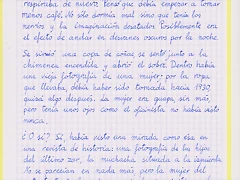 respiraba de nuevo. Pensó que debía empezar a tomar
menos café. No sólo dormía mal sino que tenía los
nervios y la imaginación alterados. Posiblemente era
el efecto de andar en desvanes oscuros por la noche.
Se sirvió una copa de soñac, se sentó junto a la
chimenea encendida y abrió el sobre. Dentro había
una vieja fotografía de una mujer; por la ropa
que llevaba, debía haber sido tomada hacia 1930,
quizá algo después. La mujer era guapa, sin más,
pero tenía unos ojos como el oficinista no había visto
nunca.
¿O sí? Sí, había visto una mirada como esa en
una revista de historia: una fotografía de las hijas
del último zar, la muchacha situada a la izquierda.
No se parecían en nada más pero la mujer del